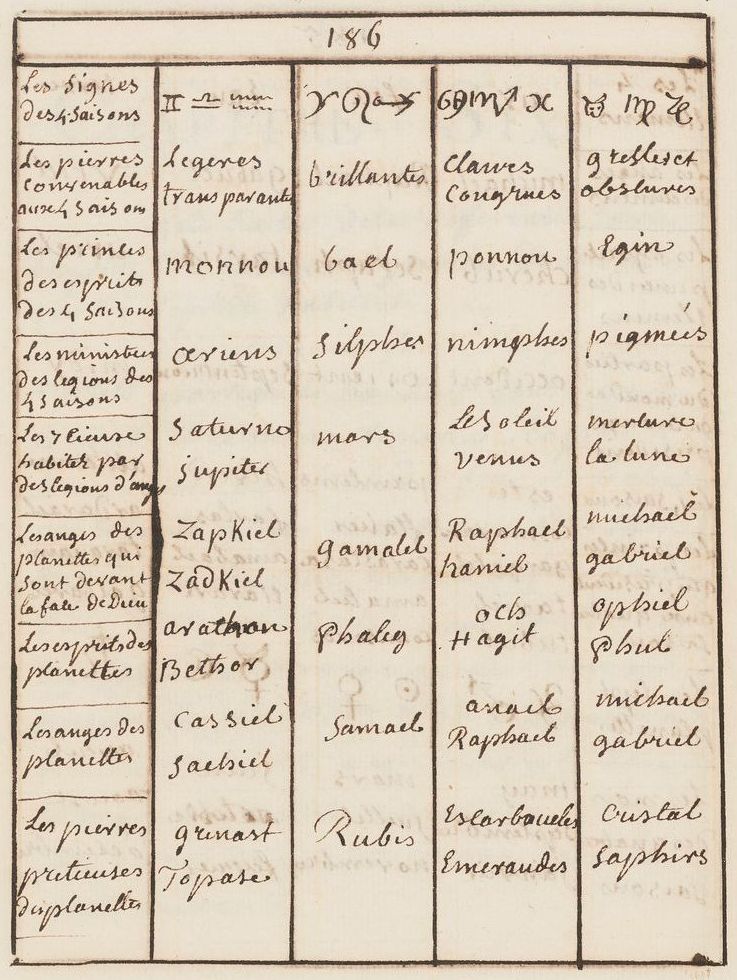 186
Les Signes
des 4 Saisons
♊ ♎ ♒
♈ ♌ ♐
♋ ♏ ♓
♉ ♍ ♑
Les pierres
Convenables
aux 4 Saisons
Legeres
transparante
brillantes
Claires
Congrues
gresles et
obscures
Les princes
des esprits
des 4 Saisons
monnou
bael
ponnou
Egin
Les ministres
des legions des
4 Saisons
aeriens
Silphes
nimphes
pigmées
Les 7 Cieuse
habites par
des legions d'anges
Saturne
jupiter
mars
Le Soleil
venus
mercure
la lune
Les anges des
planettes qui
Sont devant
la face de Dieu
Zapkiel
Zadkiel
gamalel
Raphael
haniel
michael
gabriel
Les esprits des
planettes
arathron
Bethor
Phaleg
och
Hagit
ophiel
Phul
Les anges des
planettes
Cassiel
Sachiel
Samael
anael
Raphael
michael
gabriel
Les pierres
pretieuses
des planettes
grenast
Topase
Rubis
Escarboucles
Emeraudes
Cristal
Saphirs